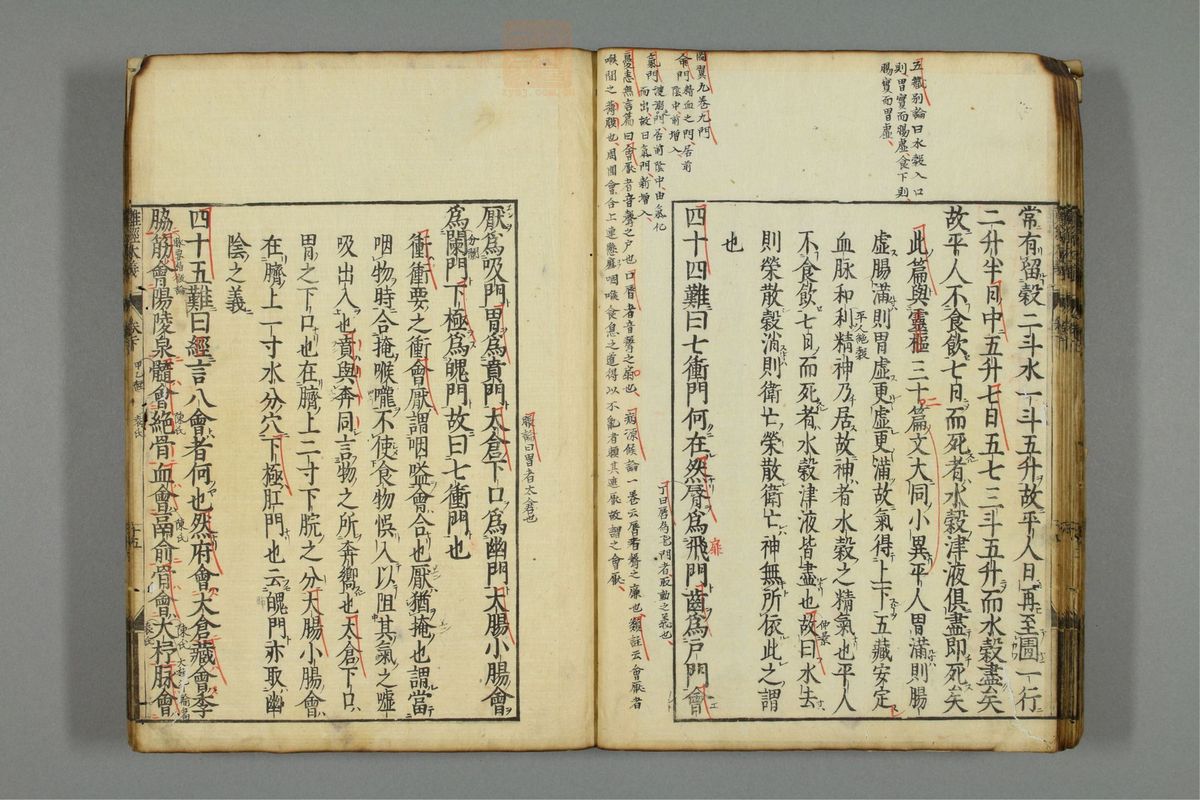 五藏別論曰水穀入口
則胃實而腸虛食下則
腸實而胃虛
常有留穀二斗水一斗五升故平人日再至圊一行
二升半日中五升七日五七三斗五升而水穀盡矣
故平人不食飲七日而死者水穀津液俱盡即死矣
此篇與靈樞三十篇文大同小異平人胃滿則腸
虛腸滿則胃虛更虛更滿故氣得上下五藏安定
血脉和利精神乃居故神者水穀之精氣也平人
平人絕穀
不食飲七日而死者水穀津液皆盡也故曰水去
仲景
則榮散穀消則衛亡榮散衛亡神無所依此之謂
也
四十四難曰七衝門何在然脣為飛門齒為戶門會
扉
丁曰唇為飛門者取動之義也
圖翼九卷九門
命門精血之門居前
陰中前增入
氣門溲溺門居前陰中由氣化
而出故曰氣門新增入
憂恚無言篇曰會厭者音聲之戶也口唇者音聲之扇也病源候論一卷云唇者聲之㢘也類註云會厭者
喉間之薄膜也周圍會合上連懸雍咽喉食息之道得以不亂者賴其遮厭故謂之會厭
厭為吸門胃為賁門太倉下口為幽門大腸小腸會
脹論曰胃者太倉也
為闌門下極為魄門故曰七衝門也
分闌
衝衝要之衝會厭謂咽嗌會合也厭猶掩也謂當
咽物時合掩喉嚨不使食物悞入以阻其氣之噓
吸出入也賁與奔同言物之所奔嚮也太倉下口
胃之下口也在臍上二寸下脘之分大腸小腸會
在臍上一寸水分穴下極肛門也云魄門亦取幽
陰之義
四十五難曰經言八會者何也然府會太倉藏會季
脇筋會陽陵泉髓會絕骨血會鬲俞骨會大杼脉會